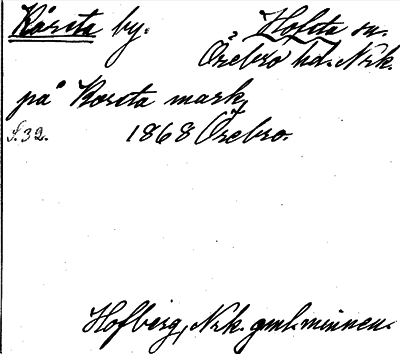 Kårsta by. Hofsta sn.
Örebro hd. Nrk.
på Korsta mark,
s. 32. 1868 Örebro.
Hofberg, Nrk. gml. minnen.